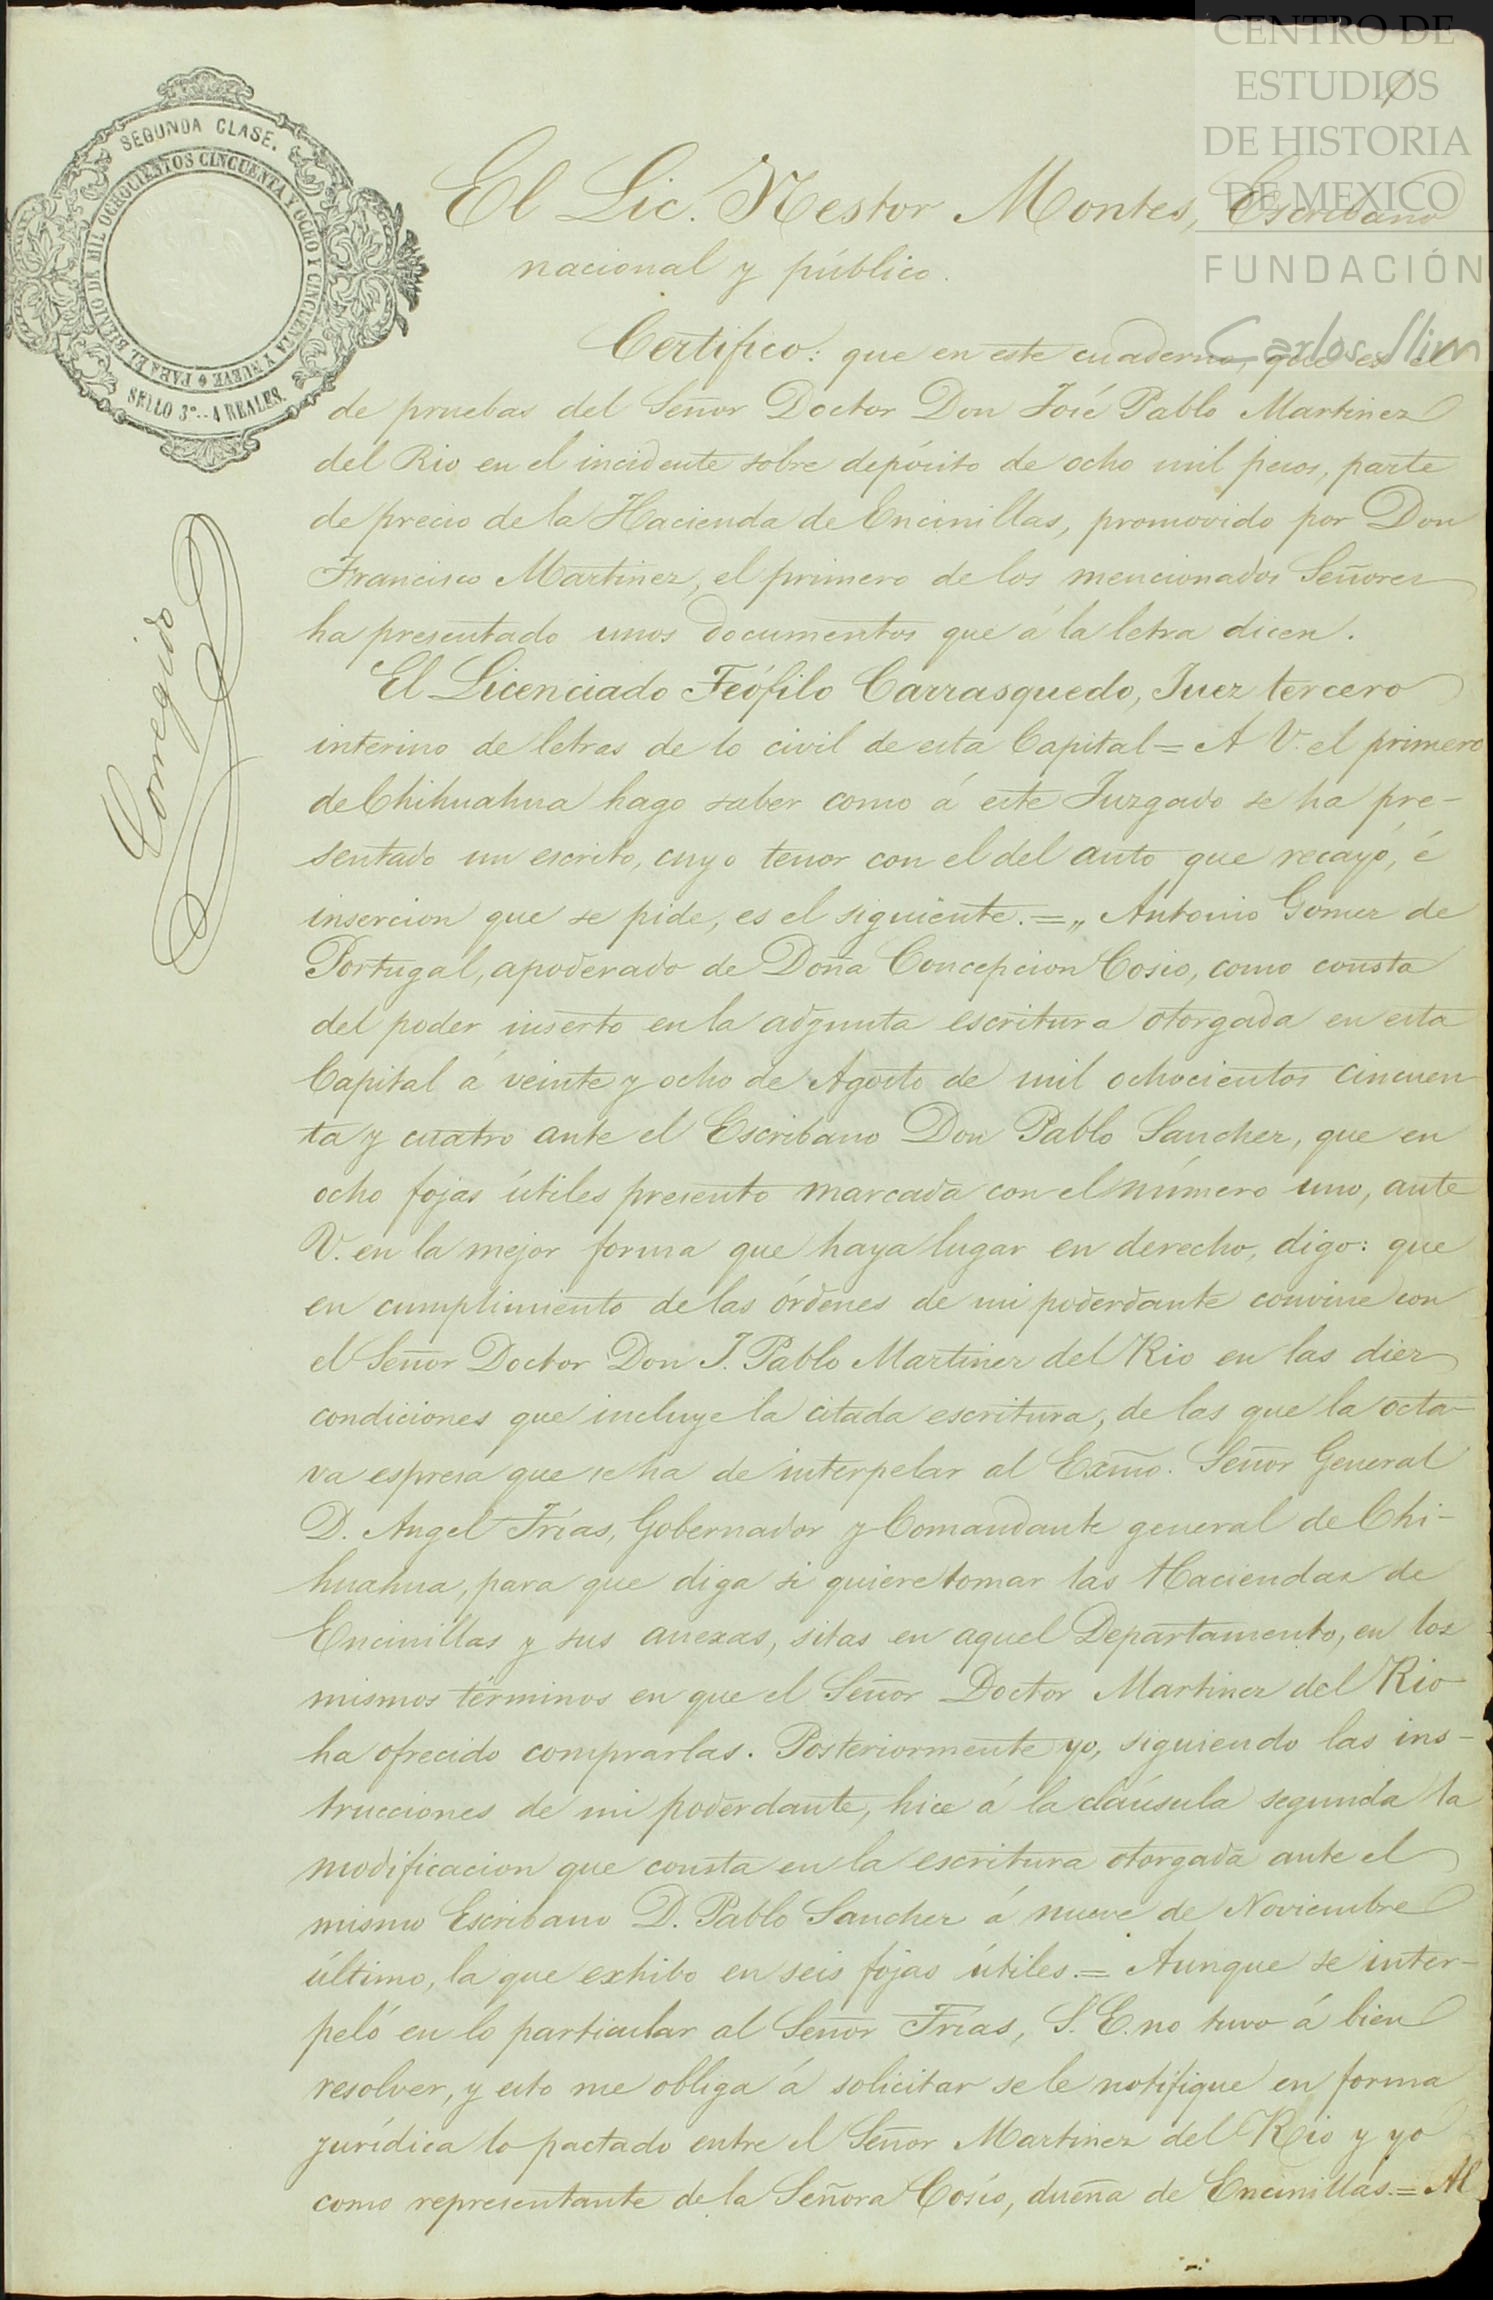 CENTRO DE
ESTUDIOS
DE HISTORIA
DE MEXICO
FUNDACIÓN
Carlos Slim
SEGUNDA CLASE.
PARA EL BIENIO DE MIL OCHOCIENTOS CINCUENTA Y OCHO Y CINCUENTA Y NUEVE
SELLO 3º..4 REALES.
El Lic. Nestor Montes, Escribano
nacional y público.
Certifico: que en este cuaderno, que es el
de pruebas del Señor Doctor Don José Pablo Martinez
del Rio en el incidente sobre depósito de ocho mil pesos, parte
de precio de la Hacienda de Encinillas, promovido por Don
Francisco Martinez, el primero de los mencionados Señores
ha presentado unos documentos que á la letra dicen.
Corregido
El Licenciado Teófilo Carrasquedo, Juez tercero
interino de letras de lo civil de esta Capital = A V. el primero
de Chihuahua hago saber como á este Juzgado se ha pre-
sentado un escrito, cuyo tenor con el del auto que recayó, é
insercion que se pide, es el siguiente. = „ Antonio Gomez de
Portugal, apoderado de Doña Concepcion Cosio, como consta
del poder inserto en la adjunta escritura otorgada en esta
Capital á veinte y ocho de Agosto de mil ochocientos cincuen
ta y cuatro ante el Escribano Don Pablo Sanchez, que en
ocho fojas útiles presento marcada con el número uno, ante
V. en la mejor forma que haya lugar en derecho, digo: que
en cumplimiento de las órdenes de mi poderdante convine con
el Señor Doctor Don J. Pablo Martinez del Rio en las diez
condiciones que incluye la citada escritura, de las que la octa-
va espresa que se ha de interpelar al Exmo. Señor General
D. Angel Frías, Gobernador y Comandante general de Chi-
huahua, para que diga si quiere tomar las Haciendas de
Encinillas y sus anexas, sitas en aquel Departamento, en los
mismos términos en que el Señor Doctor Martinez del Rio
ha ofrecido comprarlas. Posteriormente yo, siguiendo las ins-
trucciones de mi poderdante, hice á la cláusula segunda la
modificacion que consta en la escritura otorgada ante el
mismo Escribano D. Pablo Sanchez á nueve de Noviembre
último, la que exhibo en seis fojas útiles. = Aunque se inter-
peló en lo particular al Señor Frías, S. E. no tuvo á bien
resolver, y esto me obliga á solicitar se le notifique en forma
jurídica lo pactado entre el Señor Martinez del Rio y yo
como representante de la Señora Cosío, dueña de Encinillas. = Al